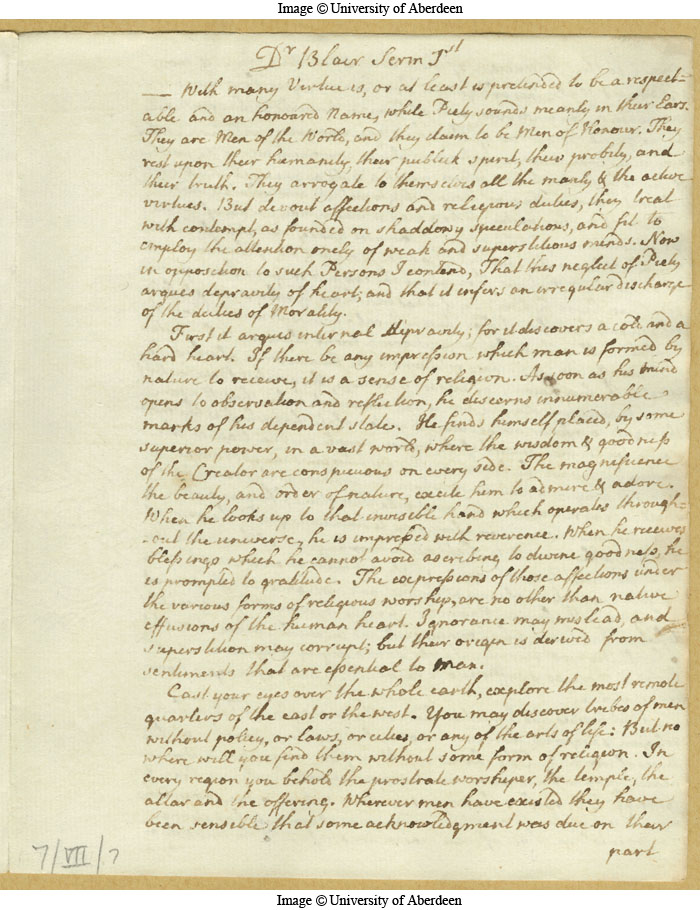 Image © University of Aberdeen
Dr Blair Serm 1st
— With many Virtue is, or at least is pretended to be a respect=
able and an honoured Name, while Piety sounds meanly in their Ears.
They are Men of the World, and they claim to be Men of Honour. They
rest upon their humanity, their publick spirit, their probity, and
their truth. They arrogate to themselves all the manly & the active
virtues. But devout affections and religious duties, they treat
with contempt, as founded on shaddowy speculations, and fit to
employ the attention onely of weak and superstitious minds. Now
in opposition to such Persons I contend, That this neglect of Piety
argues depravity of heart; and that it infers an irregular discharge
of the duties of Morality.
First it argues internal depravity; for it discovers a cold and a
hard heart. If there be any impression which man is formed by
nature to receive, it is a sense of religion. As soon as his mind
opens to observation and reflection, he discerns innumerable
marks of his dependent state. He finds himself placed, by some
superior power, in a vast world, where the wisdom & goodness
of the Creator are conspicuous on every side. The magnificence
the beauty, and order of nature, excite him to admire & adore.
When he looks up to that invisible hand which operates through=
-out the universe, he is impressed with reverence. When he receives
blessings which he cannot avoid ascribing to divine goodness, he
is prompted to gratitude. The expressions of those affections under
the various forms of religious worship, are no other than native
effusions of the human heart. Ignorance may mislead, and
superstition may corrupt; but their origin is derived from
sentiments that are essential to man.
Cast your eyes over the whole earth, explore the most remote
quarters of the east or the west. You may discover tribes of men
without policy, or laws, or cities, or any of the arts of life: But no
where will you find them without some form of religion. In
every region you behold the prostrate worshiper, the temple, the
altar and the offering. Wherever men have existed they have
been sensible that some acknowledgment was due on their
part
7/VII/7
Image © University of Aberdeen